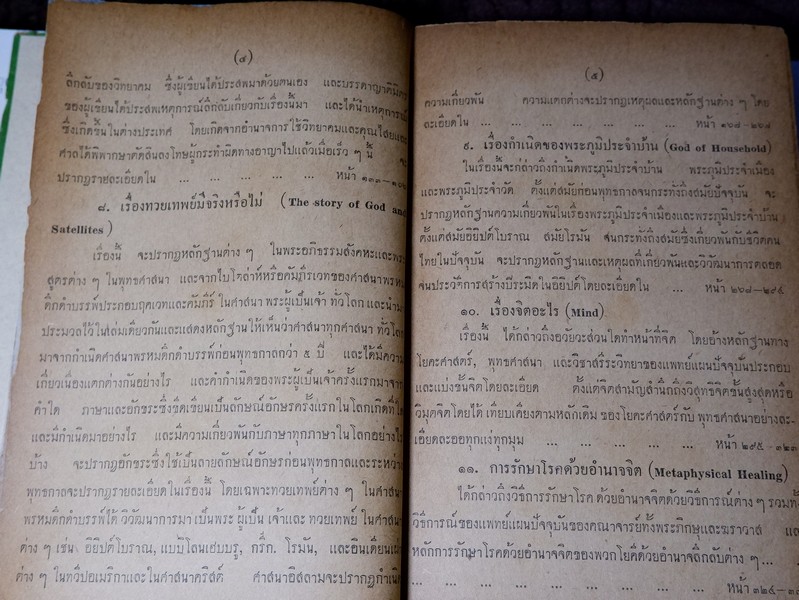 (๔)
ลึกลับของวิทยาคม ซึ่งผู้เขียนได้ประสพมาด้วยตนเอง และบรรดาญาติมิตร
ของผู้เขียนได้ประสพเหตุการณ์ลึกลับเกี่ยวกับเรื่องนี้มา และได้นำเหตุการณ์
ซึ่งเกิดขึ้นในต่างประเทศ โดยเกิดจากอำนาจการใช้วิทยาคมและคุณไสยและ
ศาลได้พิพากษาตัดสินลงโทษผู้กระทำผิดทางอาญาไปแล้วเมื่อเร็ว ๆ นี้ จะ
ปรากฏรายละเอียดใน ... ... ... ... ... ... หน้า ๑๓๓—
๘. เรื่องทวยเทพย์มีจริงหรือไม่ (The story of God and
Satellites)
เรื่องนี้ จะปรากฏหลักฐานต่าง ๆ ในพระอภิธรรมสังคหะและพระ
สูตรต่าง ๆ ในพุทธศาสนา และจากใบโคล่าห์หรือคัมภีร์เวทของศาสนาพรหม
ดึกดำบรรพ์ประกอบฤคเวทและคัมภีร์ ในศาสนา พระผู้เป็นเจ้า ทั่วโลก และนำมา
ประมวลไว้ในเล่มเดียวกันและแสดงหลักฐานให้เห็นว่าศาสนาทุกศาสนา ทั่วโลก
มาจากกำเนิดศาสนาพรหมดึกดำบรรพ์ก่อนพุทธกาลกว่า ๕ ปี และได้มีความ
เกี่ยวเนื่องแตกต่างกันอย่างไร และคำกำเนิดของพระผู้เป็นเจ้าครั้งแรกมาจาก
คำใด ภาษาและอักขระซึ่งขีดเขียนเป็นลักษณ์อักษรครั้งแรกในโลกเกิดที่ใด
และมีกำเนิดมาอย่างไร และมีความเกี่ยวพันกับภาษาทุกภาษาในโลกอย่างไร
บ้าง จะปรากฏอักขระซึ่งใช้เป็นลายลักษณ์อักษรก่อนพุทธกาลและระหว่าง
พุทธกาลจะปรากฏรายละเอียดในเรื่องนี้ โดยเฉพาะทวยเทพย์ต่าง ๆ ในศาสนา
พรหมดึกดำบรรพ์ได้ วิวัฒนาการมา เป็นพระ ผู้เป็น เจ้าและ ทวยเทพย์ ในศาสนา
ต่าง ๆ เช่น อียิปต์โบราณ, แบบิโลนเฮบบรู, กรีก, โรมัน, และอินเดียนแดง
ต่าง ๆ ในทวีปอเมริกาและในศาสนาคริสต์ ศาสนาอิสลามจะปรากฏกำเนิด
(๕)
ความเกี่ยวพัน ความแตกต่างจะปรากฏเหตุผลและหลักฐานต่าง ๆ โดย
ละเอียดใน ... ... ... ... ... ... ... หน้า ๑๖๘—๒๖๘
๙. เรื่องกำเนิดของพระภูมิประจำบ้าน (God of Household)
ในเรื่องนี้จะกล่าวถึงกำเนิดพระภูมิประจำบ้าน พระภูมิประจำเมือง
และพระภูมิประจำวัด ตั้งแต่สมัยก่อนพุทธกาลจนกระทั่งถึงสมัยปัจจุบัน จะ
ปรากฏหลักฐานความเกี่ยวพันในเรื่องพระภูมิประจำเมืองและพระภูมิประจำบ้าน
ตั้งแต่สมัยอียิปต์โบราณ สมัยโรมัน จนกระทั่งถึงสมัยซึ่งเกี่ยวพันกับชีวิตคน
ไทยในปัจจุบัน จะปรากฏหลักฐานและเหตุผลที่เกี่ยวพันและวิวัฒนาการตลอด
จนประวัติการสร้างปีระมิดในอียิปต์โดยละเอียดใน ... หน้า ๒๖๘—๒๙๕
๑๐. เรื่องจิตอะไร (Mind)
เรื่องนี้ ได้กล่าวถึงอวัยวะส่วนใดทำหน้าที่จิต โดยอ้างหลักฐานทาง
โยคะศาสตร์, พุทธศาสนา และวิชาสรีระวิทยาของแพทย์แผนปัจจุบันประกอบ
และแบ่งชั้นจิตโดยละเอียด ตั้งแต่จิตสามัญสำนึกถึงวิสุทธิจิตขั้นสูงสุดหรือ
วิมุตจิตโดยได้ เทียบเคียงตามหลักเดิม ของโยคะศาสตร์กับ พุทธศาสนาอย่างละ-
เอียดละออทุกแง่ทุกมุม ... ... ... ... ... หน้า ๒๙๕—๓๒๓
๑๑. การรักษาโรคด้วยอำนาจจิต (Metaphysical Healing)
ได้กล่าวถึงวิธีการรักษาโรค ด้วยอำนาจจิตด้วยวิธีการณ์ต่าง ๆ รวมทั้ง
วิธีการณ์ของแพทย์แผนปัจจุบันของคณาจารย์ทั้งพระภิกษุและฆราวาส และ
หลักการรักษาโรคด้วยอำนาจจิตของพวกโยคีด้วยอำนาจลึกลับต่าง ๆ ... ...
... ... ... ... ... ... ... หน้า ๓๒๔—